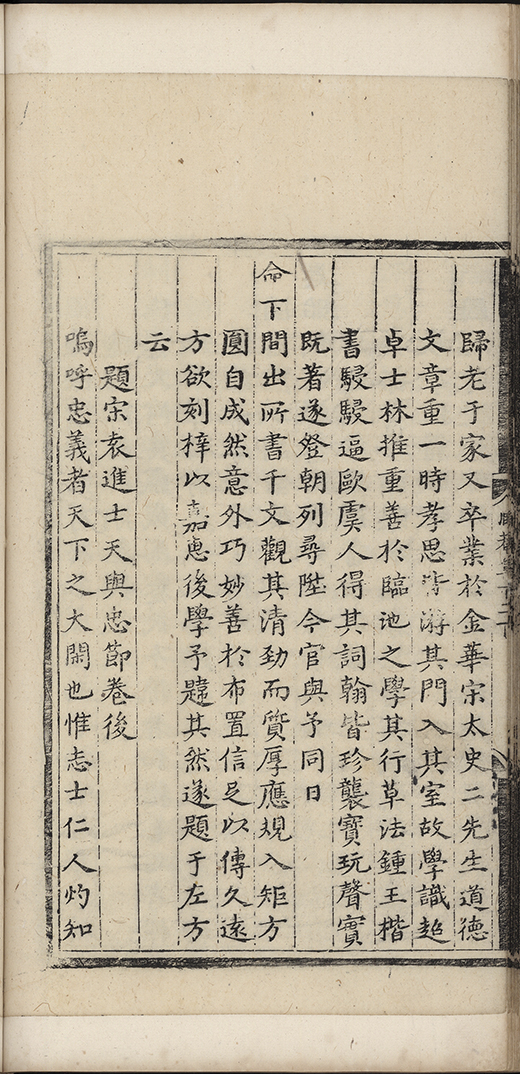 歸老于家又卒業於金華宋太史二先生道德
文章重一時孝思皆游其門入其室故學識超
卓士林推重善於臨池之學其行草法鍾王楷
書駸駸逼歐虞人得其詞翰皆珍襲寶玩聲實
既著遂登朝列尋陞今官與予同日
命下間出所書千文觀其清勁而質厚應規入矩方
圓自成然意外巧妙善於布置信足以傳久遠
方欲刻梓以嘉惠後學予韙其然遂題于左方
云
題宋袁進士天與忠節卷後
嗚呼忠義者天下之大閑也惟志士仁人灼知